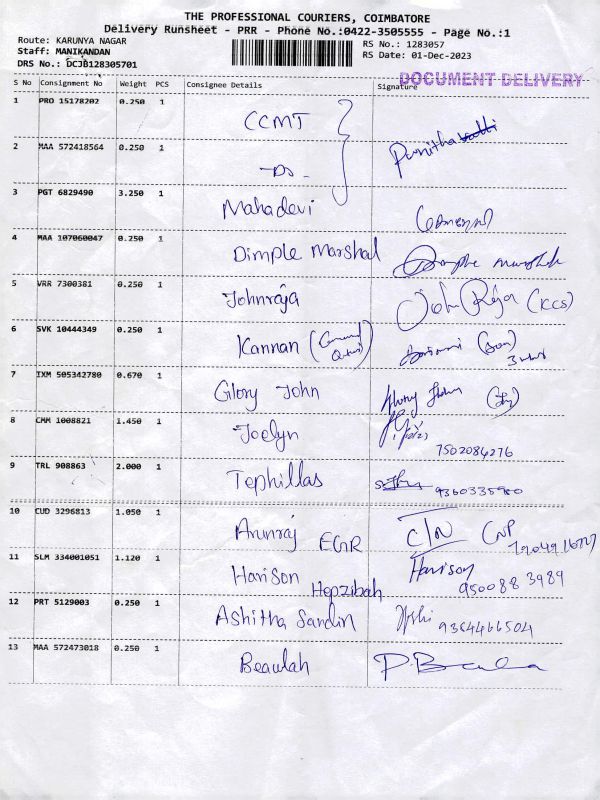 THE PROFESSIONAL COURIERS, COIMBATORE
Delivery Runsheet - PRR - Phone No.:0422-3505555 - Page No.:1
Route: KARUNYA NAGAR
RS No.: 1283057
Staff: MANIKANDAN
RS Date: 01-Dec-2023
DRS No.: DCJB128305701
DOCUMENT DELIVERY
S No Consignment No Weight PCS Consignee Details Signature
1 PRO 15178202 0.250 1 CCMT
2 MAA 572418564 0.250 1 -Do-
3 PGT 6829490 3.250 1 Mahadevi
4 MAA 107060047 0.250 1 Dimple Marshal
5 VRR 7300381 0.250 1 Johnraja John Raja (KCCS)
6 SVK 10444349 0.250 1 Kannan
7 IXM 505342780 0.670 1 Glory John
8 CMM 1008821 1.450 1 Joelyn
7502084276
9 TRL 908863 2.000 1 Tephillas 9360335980
10 CUD 3296813 1.050 1 Arunraj EGR C/N
11 SLM 334001051 1.120 1 Harison Harison
Hepzibah 950088 3989
12 PRT 5129003 0.250 1 Ashitha Sandlin 9364466504
13 MAA 572473018 0.250 1 Beaulah